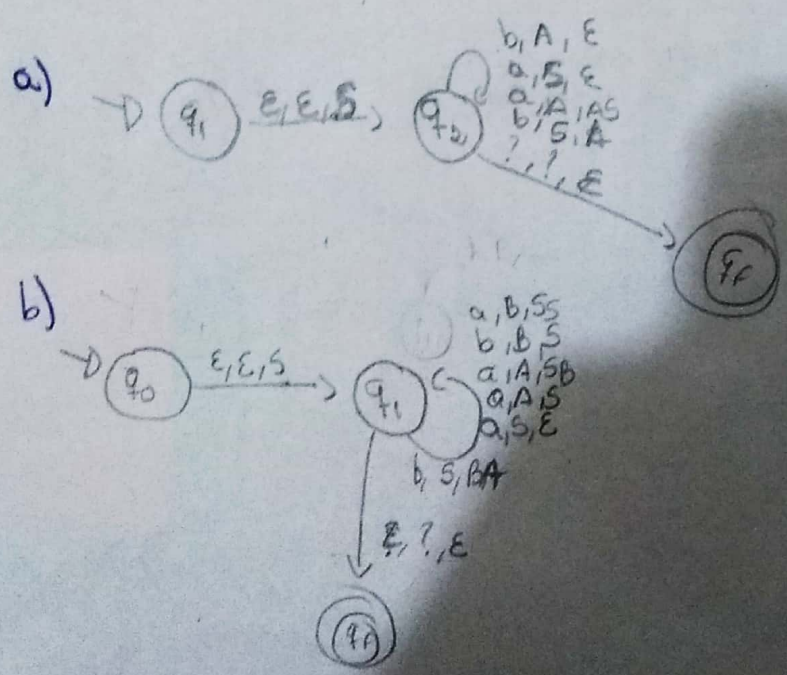 a)
q1
ε, ε, S
q2
b, A, ε
a, S, ε
a, A, AS
b, S, A
?, ?, ε
qf
b)
q0
ε, ε, S
q1
a, B, SS
b, B, S
a, A, SB
a, A, S
a, S, ε
b, S, BA
?, ε
qf